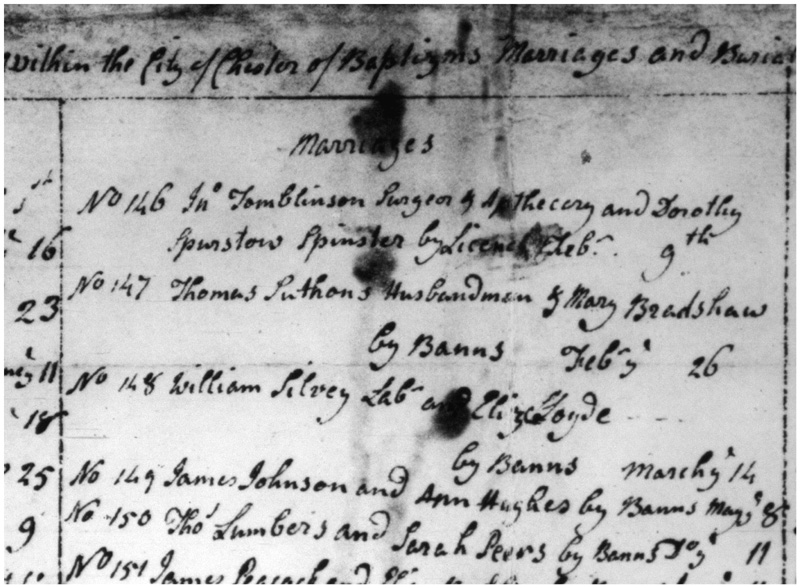 within the City of Chester of Baptizms Marriages and Burial
Marriages
16
23
11
18
25
9
No 146 Jno Tomblinson Surgeon & Apthecery and Dorothy
Spurstow Spinster by Licence Feb. 9th
No 147 Thomas Suthons Husbandman & Mary Bradshaw
by Banns Feb ye 26
No 148 William Silvey Labr and Eliz Loyde
by Banns March ye 14
No 149 James Johnson and Ann Hughes by Banns May ye 8
No 150 Thos Lumbers and Sarah Peers by Banns Do ye 11
No 151 James Peacock and